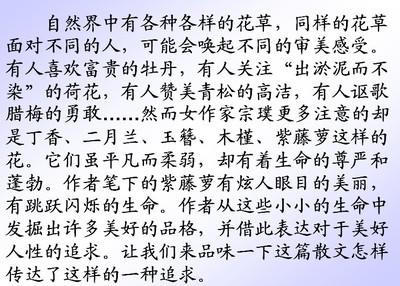 自然界中有各种各样的花草，同样的花草
面对不同的人，可能会唤起不同的审美感受。
有人喜欢富贵的牡丹，有人关注“出淤泥而不
染”的荷花，有人赞美青松的高洁，有人讴歌
腊梅的勇敢……然而女作家宗璞更多注意的却
是丁香、二月兰、玉簪、木槿、紫藤萝这样的
花。它们虽平凡而柔弱，却有着生命的尊严和
蓬勃。作者笔下的紫藤萝有炫人眼目的美丽，
有跳跃闪烁的生命。作者从这些小小的生命中
发掘出许多美好的品格，并借此表达对于美好
人性的追求。让我们来品味一下这篇散文怎样
传达了这样的一种追求。